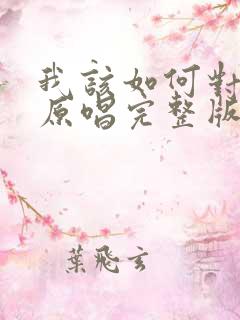 我該如何對
原唱完整版
葉飛玄